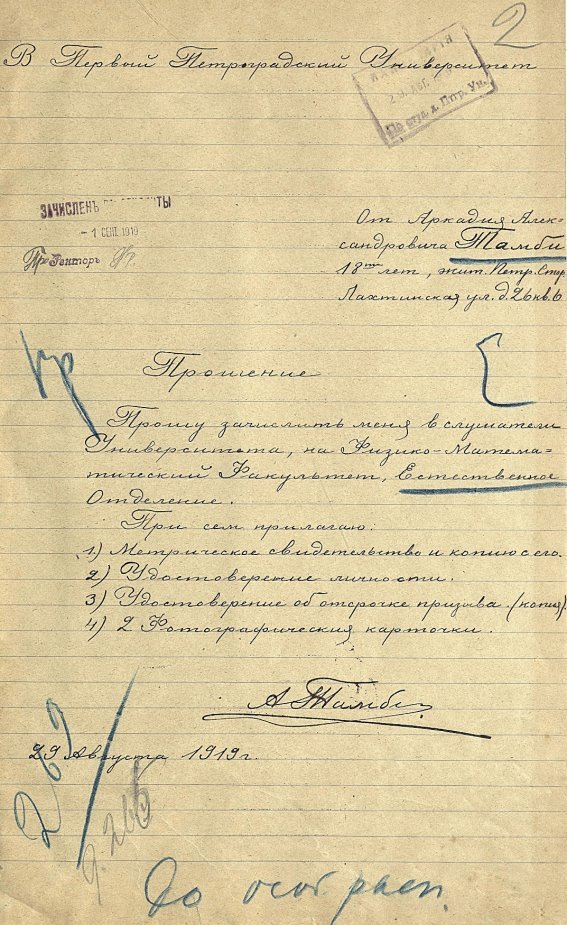 2
В Первый Петроградский Университет
КАНЦЕЛЯРІЯ
29 АВГ.
По студ. д. Птр. Ун.
ЗАЧИСЛЕНЪ ТЫ
- 1 СЕН. 1919
Про Ректоръ
От Аркадия Алек=
сандровича Тамби
18ти лет, жит. Петр. Стор
Лахтинская ул. д. 26 кв. 6
Прошение
Прошу зачислить меня в слушатели
Университета, на Физико-Матема=
тический Факультет, Естественное
Отделение.
При сем прилагаю:
1) Метрическое свидетельство и копию с его.
2) Удостоверение личности.
3) Удостоверение об отсрочке призыва. (копия).
4) 2 Фотографическия карточки.
А Тамби.
29 Августа 1919 г.
269
До особ. расп.